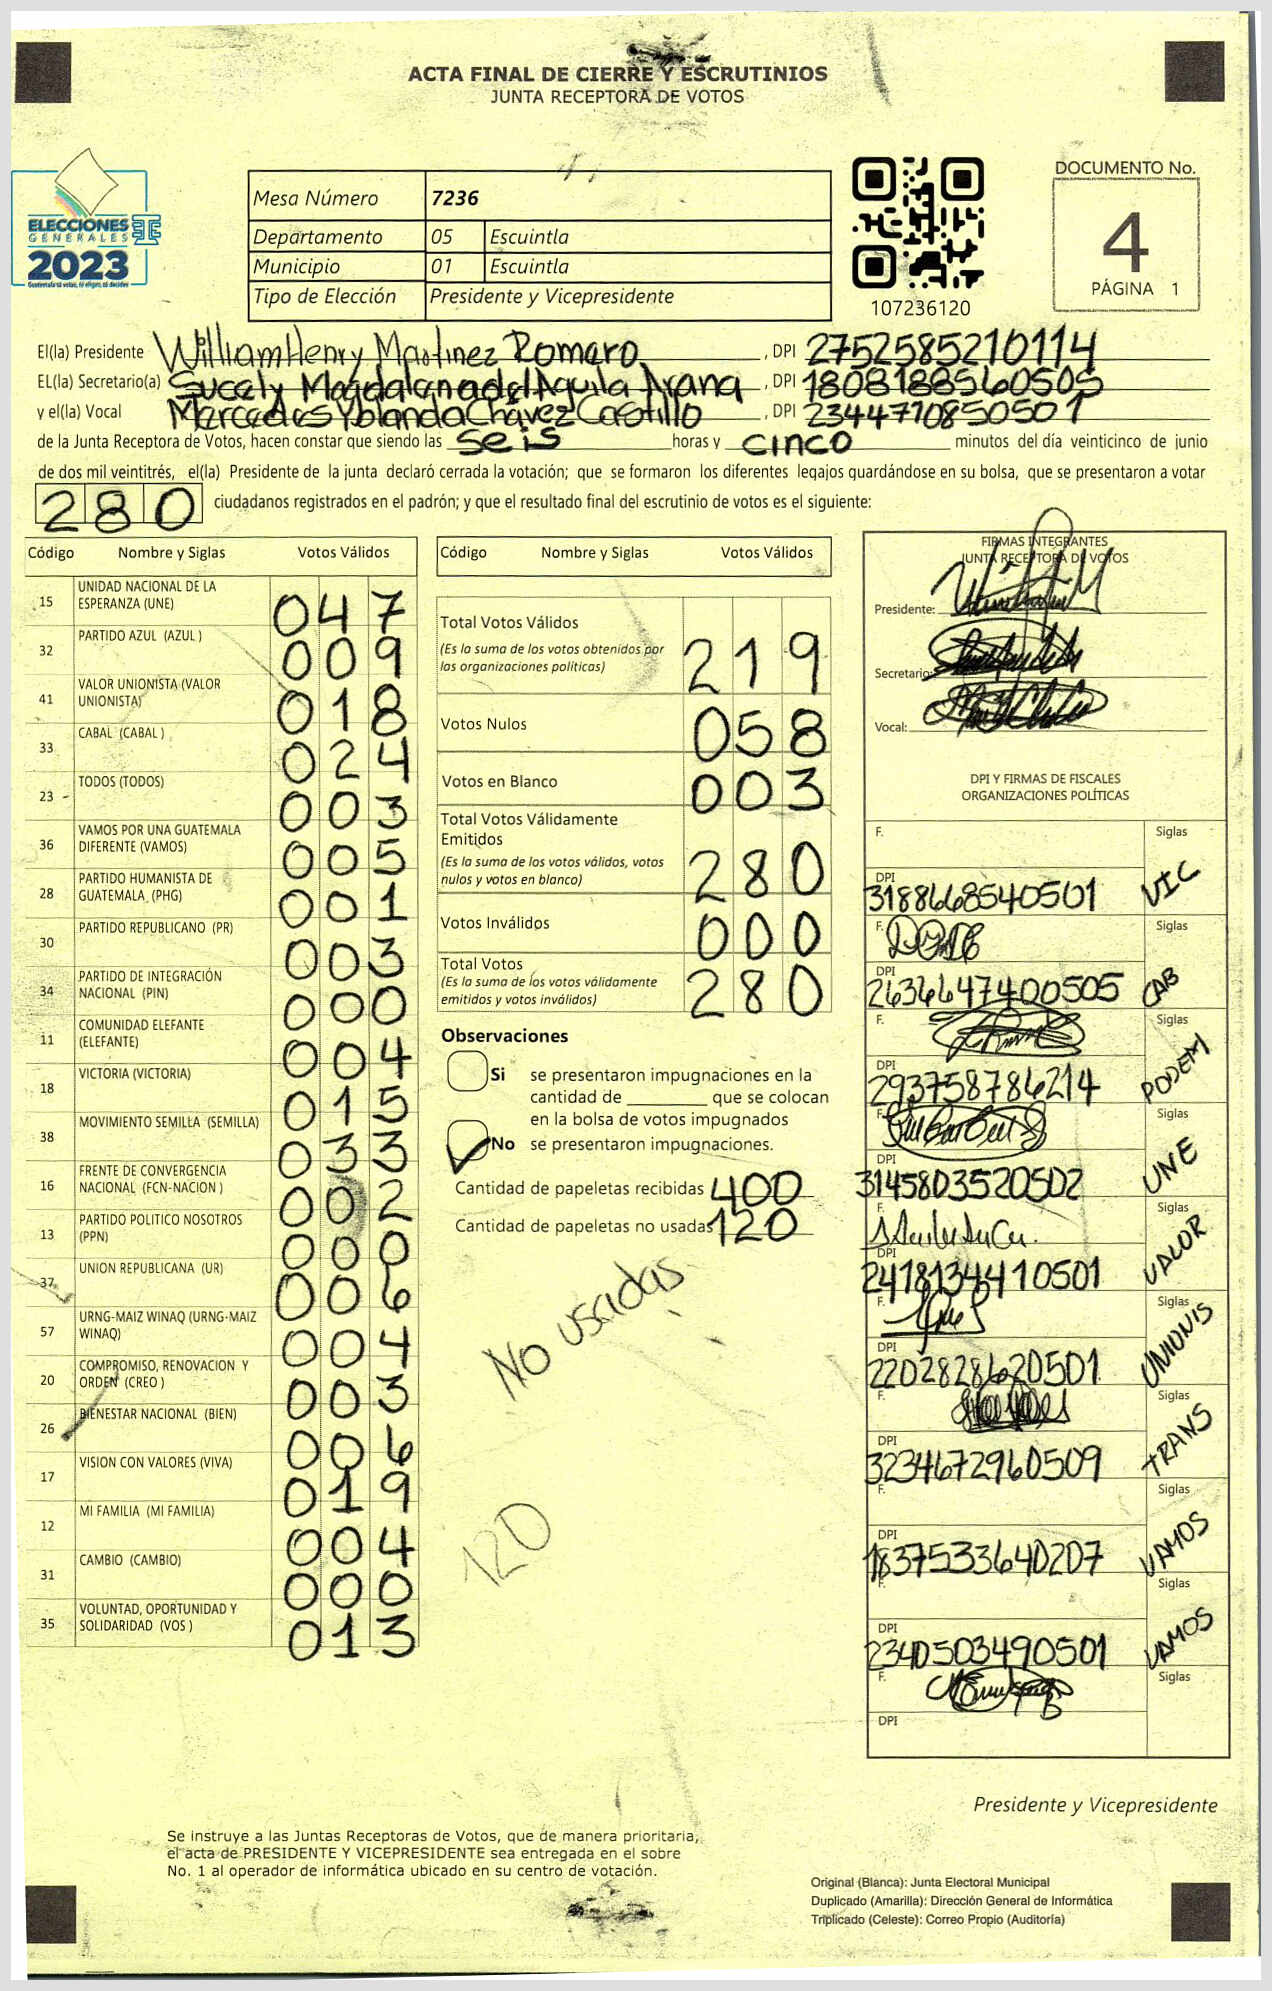 ACTA FINAL DE CIERRE Y ESCRUTINIOS
JUNTA RECEPTORA DE VOTOS
ELECCIONES
GENERALES
2023
Guatemala tú votas, tú eliges, tú decides
Mesa Número 7236
Departamento 05 Escuintla
Municipio 01 Escuintla
Tipo de Elección Presidente y Vicepresidente
107236120
DOCUMENTO No.
4
PÁGINA 1
El(la) Presidente William Henry Martinez Romero, DPI 2752585210114
EL(la) Secretario(a) Sucely Magdalena del Aguila Arana, DPI 1808188560505
y el(la) Vocal Mercedes Yolanda Chávez Castillo, DPI 2344710850501
de la Junta Receptora de Votos, hacen constar que siendo las seis horas y cinco minutos del día veinticinco de junio
de dos mil veintitrés, el(la) Presidente de la junta declaró cerrada la votación; que se formaron los diferentes legajos quardándose en su bolsa, que se presentaron a votar
280 ciudadanos registrados en el padrón; y que el resultado final del escrutinio de votos es el siguiente:
Código Nombre y Siglas Votos Válidos
15 UNIDAD NACIONAL DE LA ESPERANZA (UNE) 047
32 PARTIDO AZUL (AZUL ) 009
41 VALOR UNIONISTA (VALOR UNIONISTA) 018
33 CABAL (CABAL ) 024
23 TODOS (TODOS) 003
36 VAMOS POR UNA GUATEMALA DIFERENTE (VAMOS) 005
28 PARTIDO HUMANISTA DE GUATEMALA (PHG) 001
30 PARTIDO REPUBLICANO (PR) 003
34 PARTIDO DE INTEGRACIÓN NACIONAL (PIN) 000
11 COMUNIDAD ELEFANTE (ELEFANTE) 004
18 VICTORIA (VICTORIA) 015
38 MOVIMIENTO SEMILLA (SEMILLA) 033
16 FRENTE DE CONVERGENCIA NACIONAL (FCN-NACION ) 002
13 PARTIDO POLITICO NOSOTROS (PPN) 000
37 UNION REPUBLICANA (UR) 006
57 URNG-MAIZ WINAQ (URNG-MAIZ WINAQ) 004
20 COMPROMISO, RENOVACION Y ORDEN (CREO ) 003
26 BIENESTAR NACIONAL (BIEN) 006
17 VISION CON VALORES (VIVA) 019
12 MI FAMILIA (MI FAMILIA) 004
31 CAMBIO (CAMBIO) 000
35 VOLUNTAD, OPORTUNIDAD Y SOLIDARIDAD (VOS ) 013
Código Nombre y Siglas Votos Válidos
Total Votos Válidos 219
(Es la suma de los votos obtenidos por
las organizaciones políticas)
Votos Nulos 058
Votos en Blanco 003
Total Votos Válidamente
Emitidos 280
(Es la suma de los votos válidos, votos
nulos y votos en blanco)
Votos Inválidos 000
Total Votos 280
(Es la suma de los votos válidamente
emitidos y votos inválidos)
Observaciones
Si se presentaron impugnaciones en la
cantidad de ________ que se colocan
en la bolsa de votos impugnados
No se presentaron impugnaciones.
Cantidad de papeletas recibidas 400
Cantidad de papeletas no usadas 120
No usadas
120
FIRMAS INTEGRANTES
JUNTA RECEPTORA DE VOTOS
Presidente:
Secretario:
Vocal:
DPI Y FIRMAS DE FISCALES
ORGANIZACIONES POLÍTICAS
F. Siglas
DPI 3188668540501 VIC
F. Siglas
DPI 2636647400505 CAB
F. Siglas
DPI 293758786214 PODEM
F. Siglas
DPI 3145803520502 UNE
F. Siglas
DPI 2418134410501 VALOR
F. Siglas
DPI 2202828620501 UNIONIS
F. Siglas
DPI 3234672960509 TRANS
F. Siglas
DPI 1837533640207 VAMOS
F. Siglas
DPI 2340503490501 VAMOS
F. Siglas
DPI
Presidente y Vicepresidente
Se instruye a las Juntas Receptoras de Votos, que de manera prioritaria,
el acta de PRESIDENTE Y VICEPRESIDENTE sea entregada en el sobre
No. 1 al operador de informática ubicado en su centro de votación.
Original (Blanca): Junta Electoral Municipal
Duplicado (Amarilla): Dirección General de Informática
Triplicado (Celeste): Correo Propio (Auditoría)